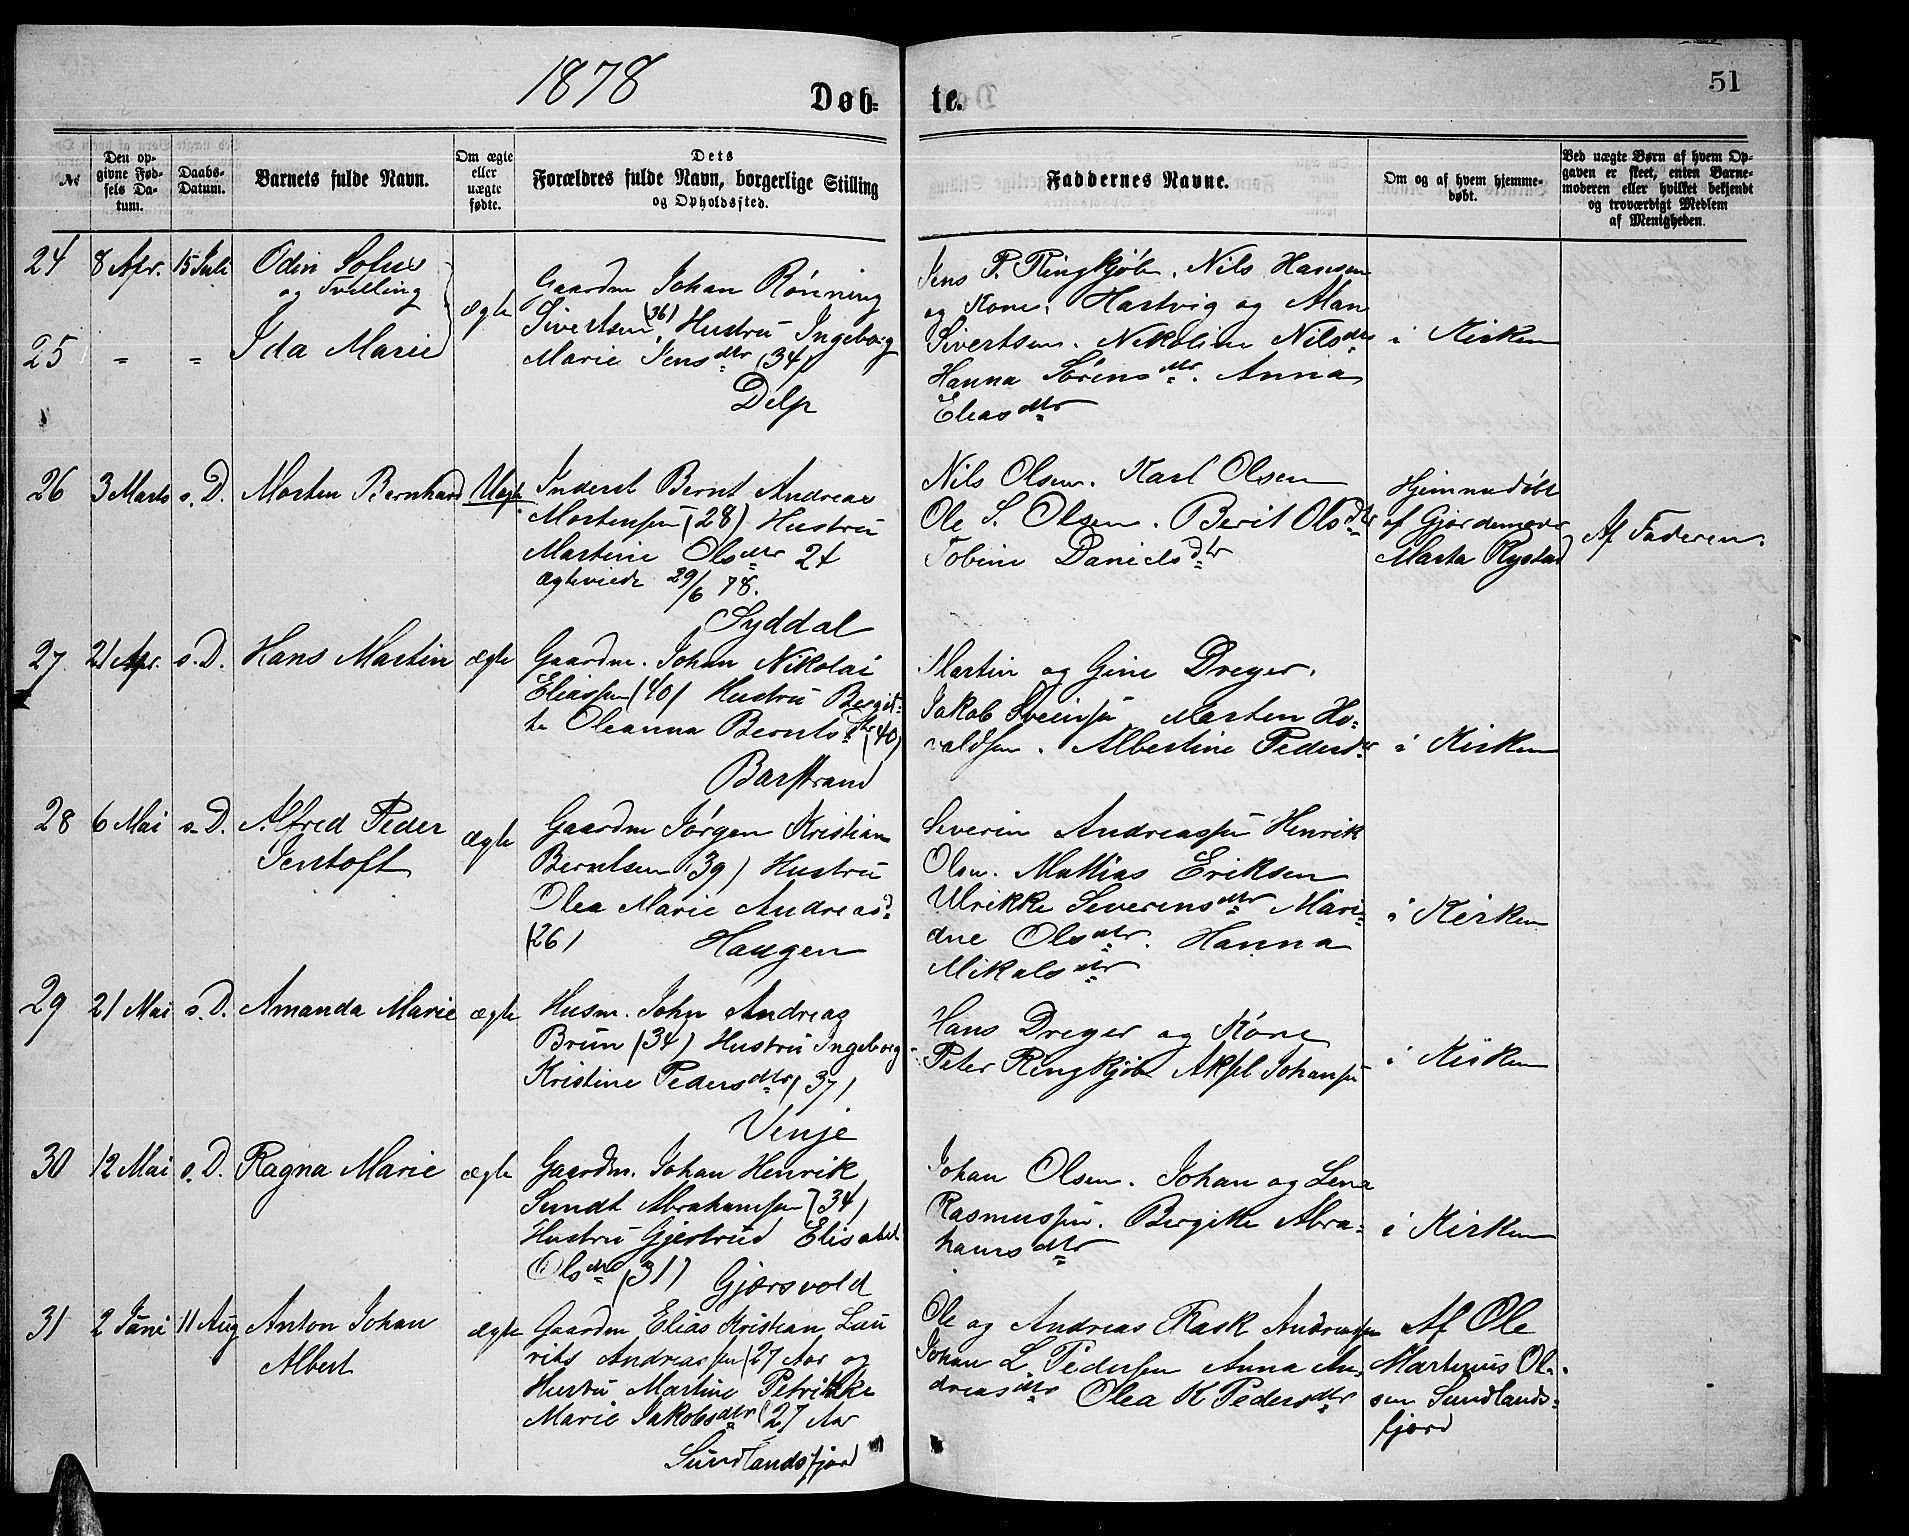 1878
Døb-
te.
51
№
Den op-
givne Fød-
sels Da-
tum.
Daabs-
Datum.
Barnets fulde Navn.
Om ægte
eller
uægte
fødte.
Dets
Forældres fulde Navn, borgerlige Stilling
og Opholdssted.
Faddernes Navne.
Om og af hvem hjemme-
døbt.
Ved uægte Børn af hvem Op-
gaven er skeet, enten Barne-
moderen eller hvilket bekjendt
og troværdigt Medlem
af Menigheden.
24 8 Apr. 15 Juli Odin Sofus
og Tvilling
25 " " Ida Marie
ægte
Gaardm Johan Rønning
Sivertsen (36) Hustru Ingeborg
Marie Jensdtr (34)
Delp
Jens P. Ringkjøb. Nils Hansen
og Kone. Hartvig og Alan
Sivertsen. Nikoline Nilsdtr
Hanna Sørensdtr. Anna
Eliasdtr
i Kirken
26 3 Marts s. D. Morten Bernhard Uægte
Inderst Bernt Andreas
Mortensen (28) Hustru
Martine Olsdtr 24
ægteviede 29/6 78.
Syddal
Nils Olsen. Karl Olsen
Ole S. Olsen. Berit Olsdtr
Tobine Danielsdtr
Hjemmedøbt
af Gjordemoder
Marta Rystad
Af Faderen.
27. 21 Apr. s. D. Hans Martin ægte
Gaardm. Johan Nikolai
Eliassen (40) Hustru Bergit-
te Oleanna Berntsdtr (40)
Barstrand
Martin og Gine Dreyer.
Jakob Sveinsen Marten Ho-
valdsen. Albertine Pedersdtr
i Kirken
28 6 Mai s. D. Alfred Peder
Jentoft
ægte
Gaardm Jørgen Kristian
Berntsen (39) Hustru
Olea Marie Andreasd-
(26) Haugen
Severin Andreassen Henrik
Olsen. Mathias Eriksen
Ulrikke Severensdtr Mari-
dne Olsdtr. Hanna
Mikalsdtr
i Kirken
29 21 Mai s. D. Amanda Marie ægte
Husm. John Andreas
Brun (34) Hustru Ingeborg
Kristine Pedersdtr (37)
Venje
Hans Dreyer og Kone
Peter Ringkjøb Aksel Johansen
i Kirken
30 12 Mai s. D. Ragna Marie ægte
Gaardm. Johan Henrik
Sundt Abrahamsen (34)
Hustru Gjertrud Elisabet
Olsdtr (31) Gjærsvold
Johan Olsen. Johan og Lena
Rasmussen. Bergitte Abra-
hamsdtr
i Kirken
31 2 Juni 11 Aug Anton Johan
Albert
ægte
Gaardm Elias Kristian Lau
rits Andreassen (27 Aar og
Hustru Martine Petrikke
Marie Jakobsdtr (27 Aar
Sundlandsfjord
Ole og Andreas Rask Andreassen
Johan L Pedersen Anna An-
dreasdtr Olea K Pedersdtr
Af Ole
Martinus Ol-
sen Sundlands-
fjord